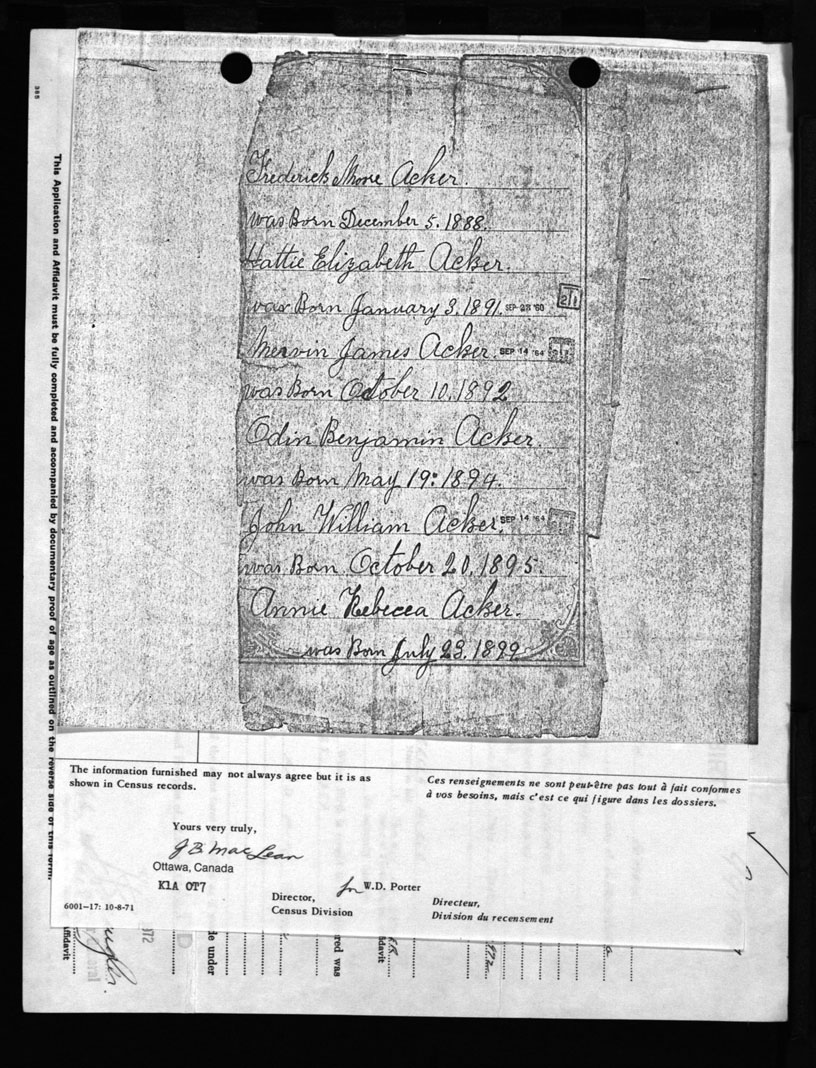 385
This Application and Affidavit must be fully completed and accompanied by documentary proof of age as outlined on the reverse side of this form.
Frederick More Acker.
was Born December 5. 1888.
Hattie Elizabeth Acker.
was Born January 3. 1891. SEP '60
Mervin James Acker. SEP 14 '64
was Born October 10. 1892
Odin Benjamin Acker.
was Born May 19: 1894.
John William Acker. SEP 14 '64
was Born October 20. 1895.
Annie Rebecca Acker.
was Born July 23. 1899
The information furnished may not always agree but it is as
shown in Census records.
Ces renseignements ne sont peut-être pas tout à fait conformes
à vos besoins, mais c'est ce qui figure dans les dossiers.
Yours very truly,
J B MacLean
Ottawa, Canada
K1A 0T7
for W.D. Porter
Director,
Census Division
Directeur,
Division du recensement
6001-17: 10-8-71
ffidavit
972
de under
red was
fidavit